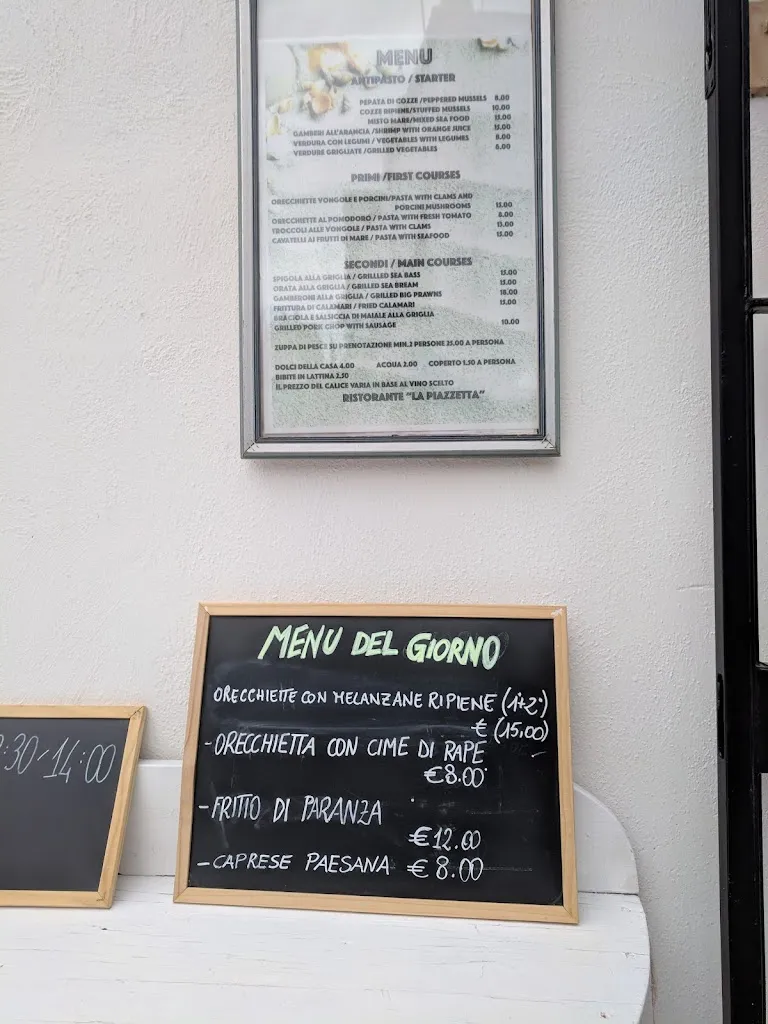 MENU
ANTIPASTO / STARTER
PEPATA DI COZZE /PEPPERED MUSSELS 8.00
COZZE RIPIENE/STUFFED MUSSELS 10.00
MISTO MARE/MIXED SEA FOOD 15.00
GAMBERI ALL'ARANCIA /SHRIMP WITH ORANGE JUICE 15.00
VERDURA CON LEGUMI / VEGETABLES WITH LEGUMES 8.00
VERDURE GRIGLIATE /GRILLED VEGETABLES 6.00
PRIMI /FIRST COURSES
ORECCHIETTE VONGOLE E PORCINI/PASTA WITH CLAMS AND
PORCINI MUSHROOMS 15.00
ORECCHIETTE AL POMODORO / PASTA WITH FRESH TOMATO 8.00
TROCCOLI ALLE VONGOLE / PASTA WITH CLAMS 15.00
CAVATELLI AI FRUTTI DI MARE / PASTA WITH SEAFOOD 15.00
SECONDI / MAIN COURSES
SPIGOLA ALLA GRIGLIA / GRILLLED SEA BASS 15.00
ORATA ALLA GRIGLIA / GRILLED SEA BREAM 15.00
GAMBERONI ALLA GRIGLIA / GRILLED BIG PRAWNS 18.00
FRITTURA DI CALAMARI / FRIED CALAMARI 15.00
BRACIOLA E SALSICCIA DI MAIALE ALLA GRIGLIA
GRILLED PORK CHOP WITH SAUSAGE 10.00
ZUPPA DI PESCE SU PRENOTAZIONE MIN.2 PERSONE 25.00 A PERSONA
DOLCI DELLA CASA 4.00 ACQUA 2.00 COPERTO 1.50 A PERSONA
BIBITE IN LATTINA 2.50
IL PREZZO DEL CALICE VARIA IN BASE AL VINO SCELTO
RISTORANTE "LA PIAZZETTA"
MENU DEL GIORNO
ORECCHIETTE CON MELANZANE RIPIENE (1°+2°)
€ (15,00)
-ORECCHIETTA CON CIME DI RAPE
€8.00
-FRITTO DI PARANZA
€12.00
-CAPRESE PAESANA €8.00
:30-14:00